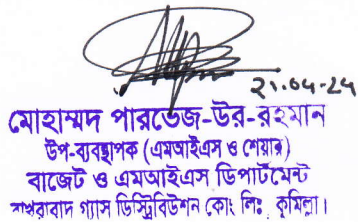 ২১.০৫-২৫
মোহাম্মদ পারভেজ-উর-রহমান
উপ-ব্যবস্থাপক (এমআইএস ও শেয়ার)
বাজেট ও এমআইএস ডিপার্টমেন্ট
বাখরাবাদ গ্যাস ডিস্ট্রিবিউশন কোং লিঃ, কুমিল্লা।